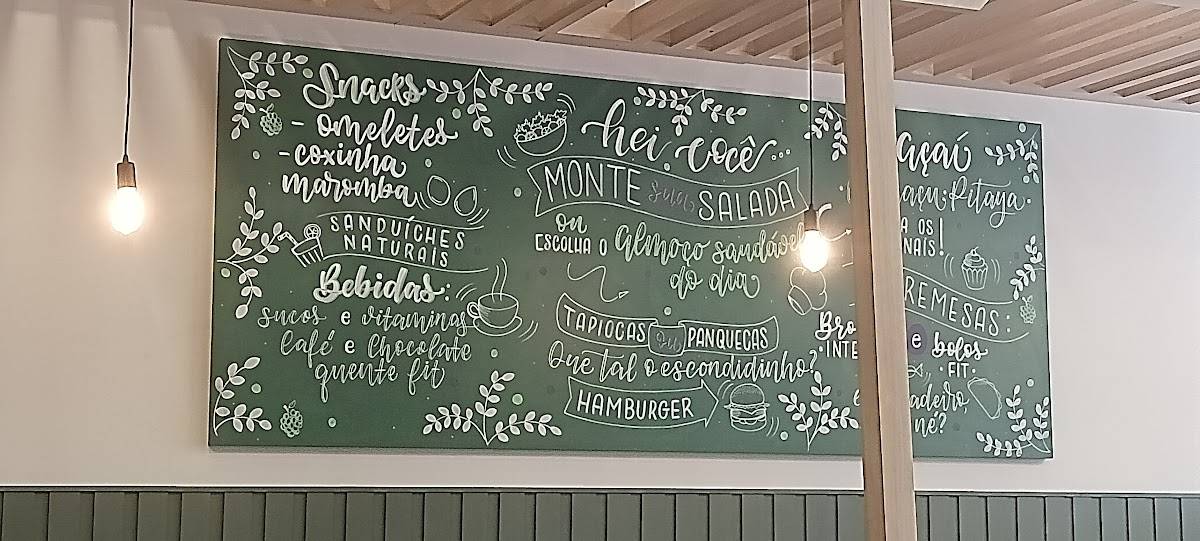 Snacks
- omeletes
- coxinha
maromba
SANDUÍCHES
NATURAIS
Bebidas:
sucos e vitaminas
Café e Chocolate
quente fit
hei você...
MONTE sua SALADA
ou
ESCOLHA O almoço saudável
do dia
TAPIOCAS ou PANQUECAS
Que tal o escondidinho?
HAMBURGER
açaí
Pitaya.
OS
REMESAS:
e bolos
FIT.